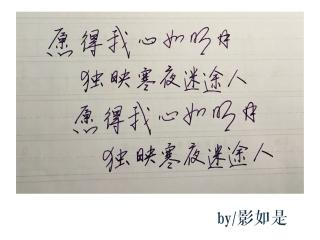 愿得我心如明月
独映寒夜迷途人
愿得我心如明月
独映寒夜迷途人
by/影如是